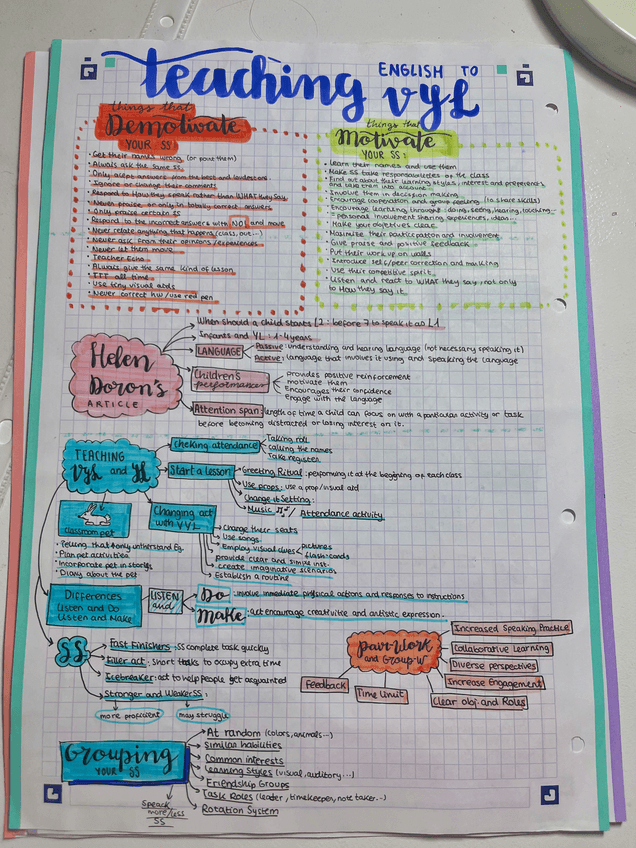 teaching ENGLISH TO VYL
things that
Demotivate
YOUR SS
• Get their names wrong (or point them)
• Always ask the same SS
• Only acept answers from the best and loudest ones
• Ignore or change their comments
• Respond to How they speak rather than WHAT they say
• Never praise or only in totally correct answers
• Only praise certain SS
• Respond to the incorrect answers with NO! and move
• Never relate anything that happens (class, out...)
• Never ask from their opinions / experiences
• Never let them move
• Teacher Echo
• Always give the same kind of lesson
• TTT all time
• Use tiny visual aids
• Never correct HW/use red pen
things that
Motivate
YOUR SS:
• Learn their names and use them
• Make SS take responsabilities of the class
• Find out about their learning styles, interest and preferences
and take them into account
• Involve them in decision making
• Encourage cooperation and group feeling (to share skills)
• Encourage learning throught: doing, seeing, hearing, touching...
= personal involvement sharing experiences, ideas...
• Make your objectives clear
• Maximise their participation and involvement
• Give praise and positive feedback
• Put their work up on walls
• Introduce self/peer correction and marking
• Use their competitive spirit
• Listen and react to WHAT they say, not only
to How they say it.
Helen
Doron's
ARTICLE
When should a child starts L2: before 7 to speak it as L1
Infants and YL: 1-4 years
LANGUAGE
Passive: understanding and hearing language (not necessary speaking it)
Active: language that involves it using and speaking the language
Children's
performance
provides positive reinforcement
motivate them
Encourages their confidence
engage with the language
Attention span: length of time a child can focus on with a particular activity or task
before becoming distracted or losing interest on it.
TEACHING
VYL and YL
Cheking attendance
Taking roll
Calling the names
Take register
Start a lesson
Greeting Ritual: performing it at the beginning of each class
Use props: use a prop/visual aid
Change it Setting:
Music / Attendance activity
Classroom pet
• Telling that only understand Eg.
• Plan pet activities
• Incorporate pet in storys
• Diary about the pet
Changing act
with VYL
Change their seats
Use songs
Employ visual clues
pictures
flashcards
provide clear and simple inst.
create imaginative scenarios
Establish a routine
Differences
Listen and Do
Listen and Make
LISTEN
and
Do: involve inmediate physical actions and responses to instructions
Make: act encourage creativitie and artistic expression.
SS
Fast Finishers: SS complete task quickly
Filler act: Short tasks to occupy extra time
Icebreaker: act to help people get acquainted
Stronger and Weaker SS:
more proficient
may struggle
Pair Work
and Group W
Increased Speaking Practice
Collaborative Learning
Diverse perspectives
Increase Engagement
Clear obj. and Roles
Time Limit
Feedback
Grouping
YOUR SS
Speack
more/less
SS
At random (colors, animals...)
Similar habilities
Common interests
Learning Styles (visual, auditory...)
Friendship Groups
Task Roles (leader, timekeeper, note taker...)
Rotation System